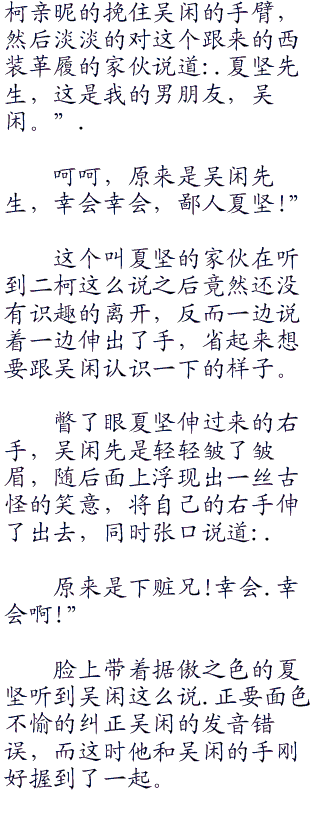 柯亲昵的挽住吴闲的手臂，
然后淡淡的对这个跟来的西
装革履的家伙说道:.夏坚先
生，这是我的男朋友，吴
闲。”.
呵呵，原来是吴闲先
生，幸会幸会，鄙人夏坚!”
这个叫夏坚的家伙在听
到二柯这么说之后竟然还没
有识趣的离开，反而一边说
着一边伸出了手，省起来想
要跟吴闲认识一下的样子。
瞥了眼夏坚伸过来的右
手，吴闲先是轻轻皱了皱
眉，随后面上浮现出一丝古
怪的笑意，将自己的右手伸
了出去，同时张口说道:.
原来是下赃兄!幸会.幸
会啊!”
脸上带着据傲之色的夏
坚听到吴闲这么说.正要面色
不愉的纠正吴闲的发音错
误，而这时他和吴闲的手刚
好握到了一起。